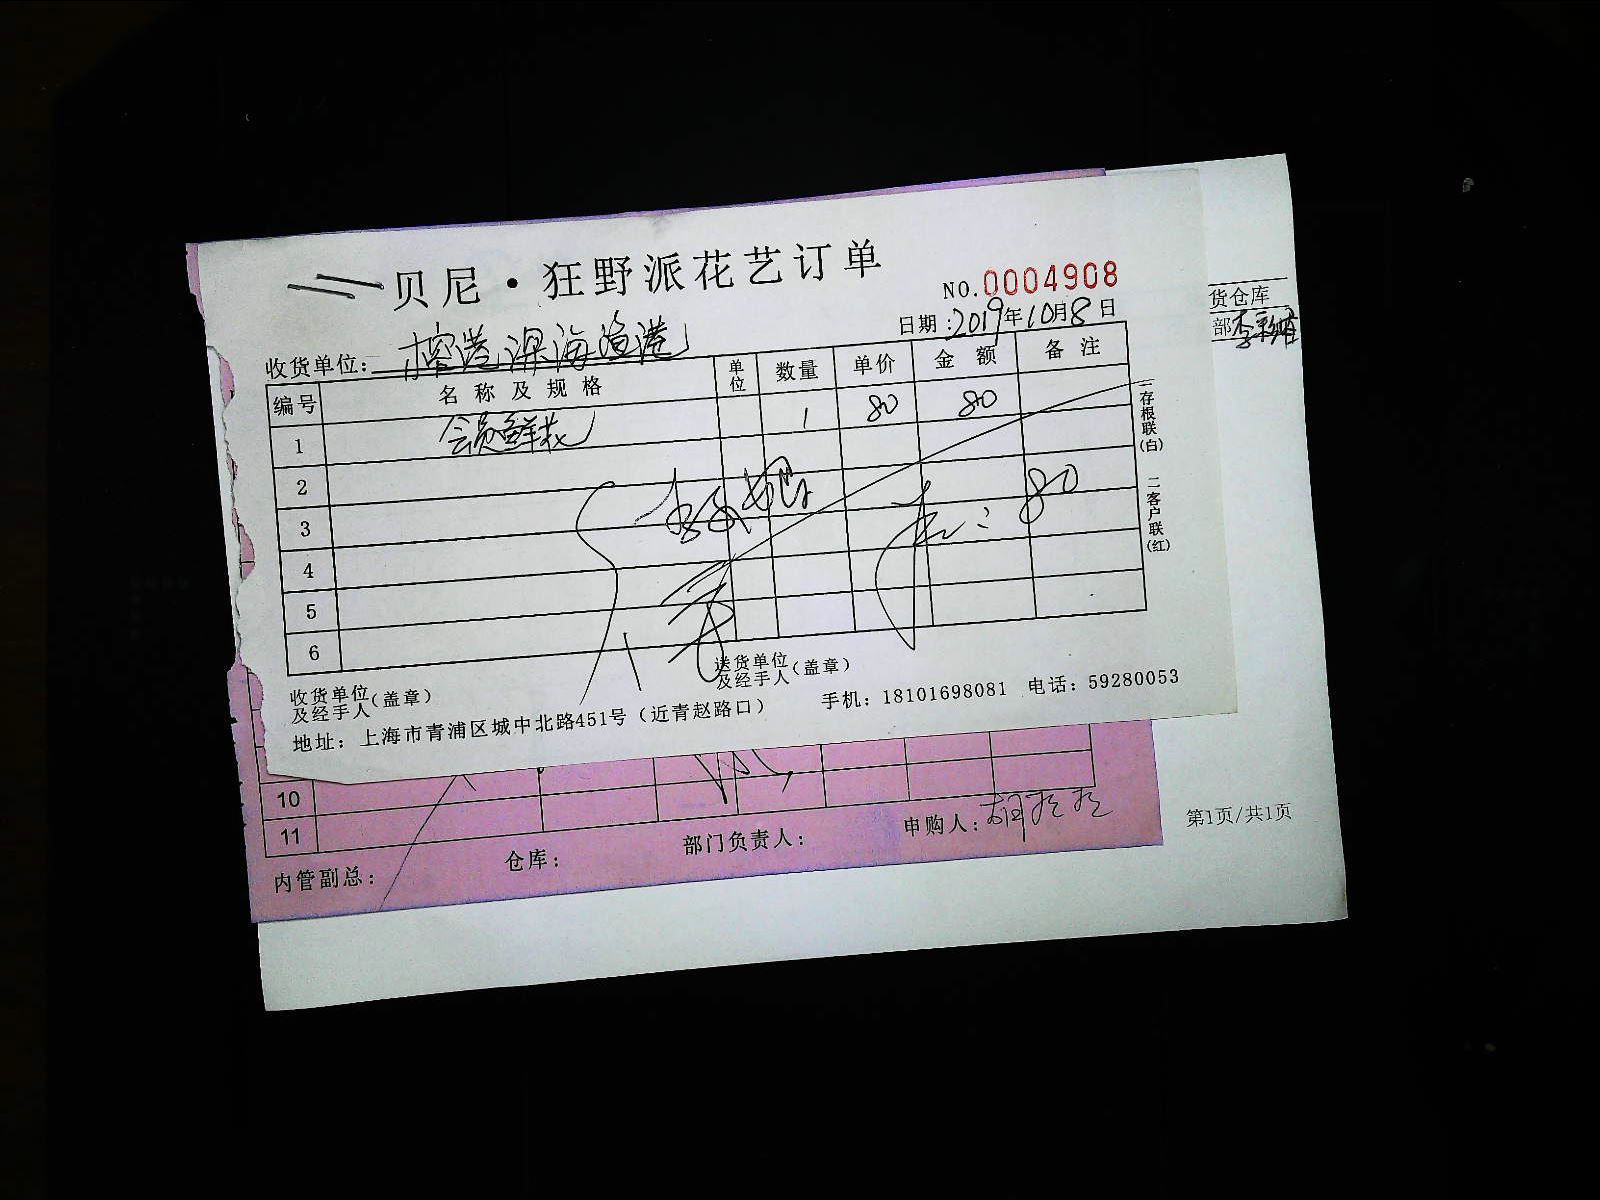 贝尼·狂野派花艺订单
NO.0004908
日期:2019年10月8日
收货单位: 榕港深海渔港
编号 名称及规格 单位 数量 单价 金额 备注
1 会员鲜花 1 80 80
2
3
4 80
5
6
一存根联(白) 二客户联(红)
收货单位及经手人(盖章)
送货单位及经手人(盖章)
地址: 上海市青浦区城中北路451号(近青赵路口) 手机: 18101698081 电话: 59280053
货仓库
部
10
11
内管副总: 仓库: 部门负责人: 申购人:
第1页/共1页